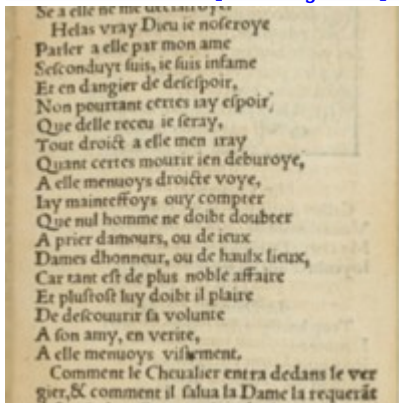 Se a elle ne me
Helas vray Dieu ie noseroye
Parler a elle par mon ame
Sesconduyt suis, ie suis infame
Et en dangier de desespoir,
Non pourtant certes iay espoir,
Que delle receu ie seray,
Tout droict a elle men iray
Quant certes mourir ien deburoye,
A elle menuoys droicte voye,
Iay mainteffoys ouy compter
Que nul homme ne doibt doubter
A prier damours, ou de ieux
Dames dhonneur, ou de haulx lieux,
Car tant est de plus noble affaire
Et plustost luy doibt il plaire
De descouurir sa volunte
A son amy, en verite,
A elle menuoys vistement.
Comment le Cheualier entra dedans le ver
gier, & comment il salua la Dame la requerãt